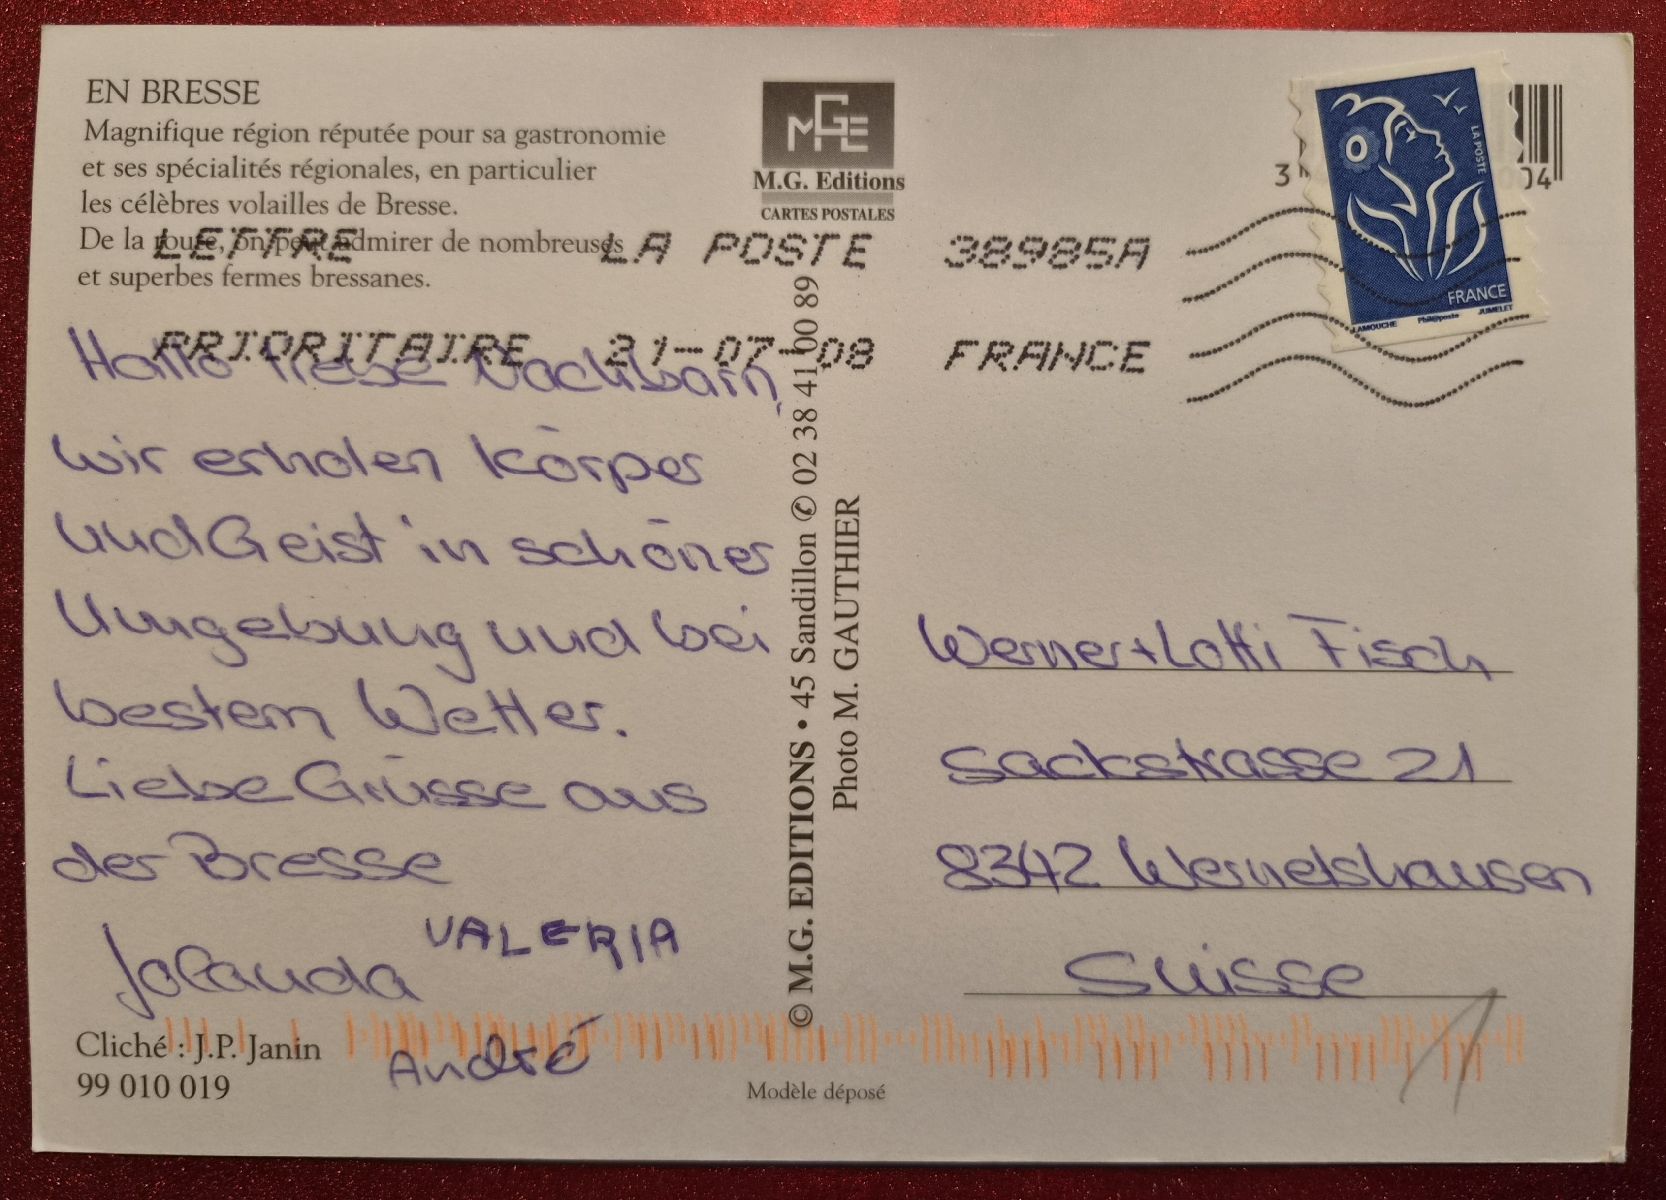 EN BRESSE
Magnifique région réputée pour sa gastronomie
et ses spécialités régionales, en particulier
les célèbres volailles de Bresse.
De la route, on peut admirer de nombreuses
et superbes fermes bressanes.
MGE
M.G. Editions
CARTES POSTALES
3
004
LA POSTE
FRANCE
LAMOUCHE Phil@poste JUMELET
LETTRE LA POSTE 38985A
PRIORITAIRE 21-07-08 FRANCE
Hallo liebe Nachbarn,
wir erholen Körper
und Geist in schöner
Umgebung und bei
bestem Wetter.
Liebe Grüsse aus
der Bresse
Jolanda VALERIA
André
Cliché : J.P. Janin
99 010 019
© M.G. EDITIONS • 45 Sandillon ✆ 02 38 41 00 89
Photo M. GAUTHIER
Modèle déposé
Werner + Lotti Fisch
Sackstrasse 21
8342 Wernetshausen
Suisse
1